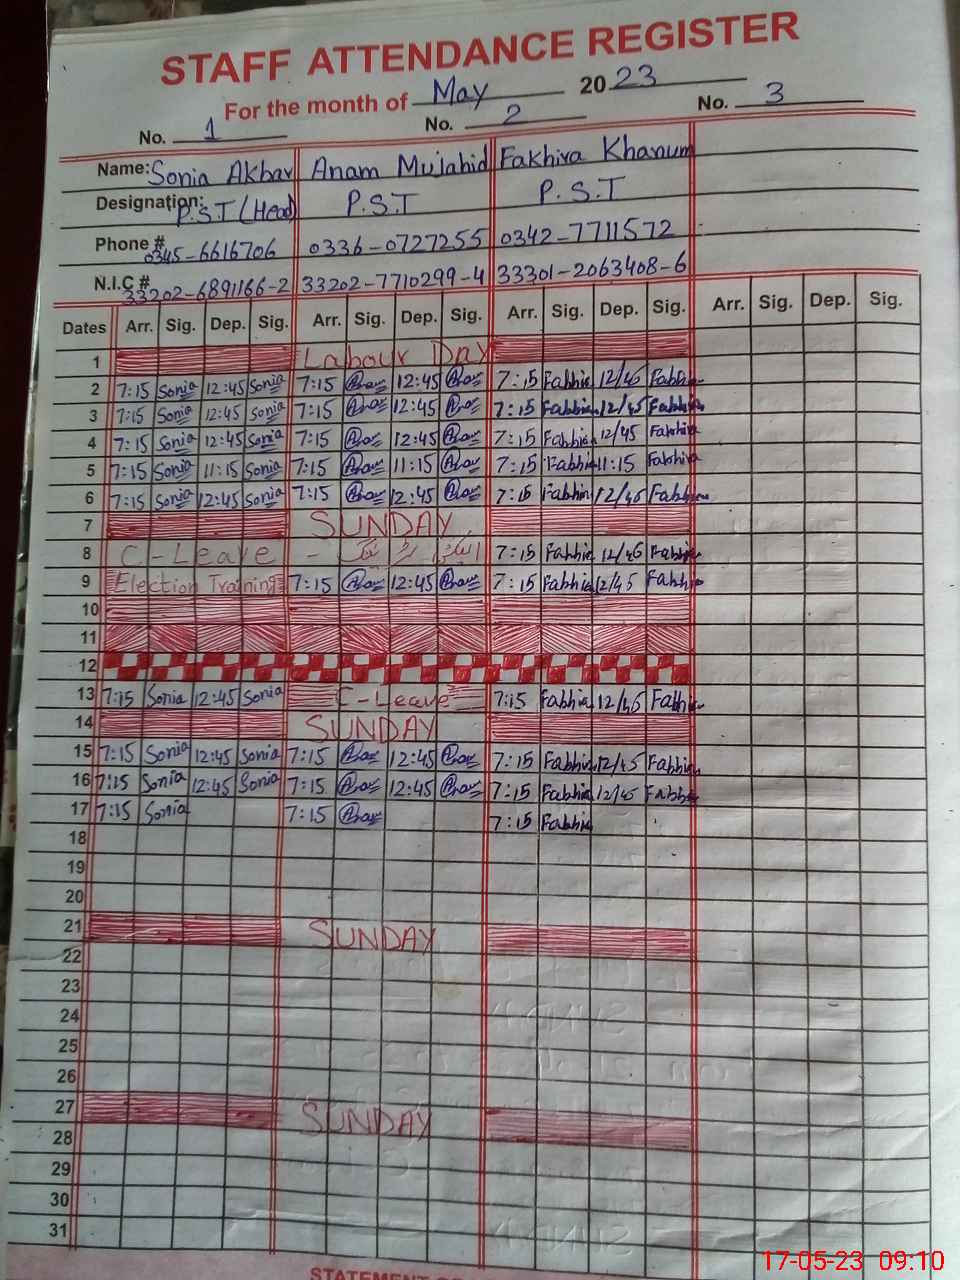 STAFF ATTENDANCE REGISTER
For the month of May 2023
No. 1 No. 2 No. 3
Name: Sonia Akbar Anam Mujahid Fakhira Khanum
Designation: P.S.T (Head) P.S.T P.S.T
Phone # 0345-6616706 0336-0727255 0342-7711572
N.I.C # 33202-6891166-2 33202-7710299-4 33301-2063408-6
Dates Arr. Sig. Dep. Sig. Arr. Sig. Dep. Sig. Arr. Sig. Dep. Sig. Arr. Sig. Dep. Sig.
1 Labour Day
2 7:15 Sonia 12:45 Sonia 7:15 Anam 12:45 Anam 7:15 Fakhira 12/45 Fakhira
3 7:15 Sonia 12:45 Sonia 7:15 Anam 12:45 Anam 7:15 Fakhira 12/45 Fakhira
4 7:15 Sonia 12:45 Sonia 7:15 Anam 12:45 Anam 7:15 Fakhira 12/45 Fakhira
5 7:15 Sonia 11:15 Sonia 7:15 Anam 11:15 Anam 7:15 Fakhira 11:15 Fakhira
6 7:15 Sonia 12:45 Sonia 7:15 Anam 12:45 Anam 7:15 Fakhira 12/45 Fakhira
7 SUNDAY
8 C-Leave - 7:15 Fakhira 12/45 Fakhira
9 Election Training 7:15 Anam 12:45 Anam 7:15 Fakhira 12/45 Fakhira
10
11
12
13 7:15 Sonia 12:45 Sonia C-Leave 7:15 Fakhira 12/45 Fakhira
14 SUNDAY
15 7:15 Sonia 12:45 Sonia 7:15 Anam 12:45 Anam 7:15 Fakhira 12/45 Fakhira
16 7:15 Sonia 12:45 Sonia 7:15 Anam 12:45 Anam 7:15 Fakhira 12/45 Fakhira
17 7:15 Sonia 7:15 Anam 7:15 Fakhira
18
19
20
21 SUNDAY
22
23
24
25
26
27 SUNDAY
28
29
30
31
17-05-23 09:10
STATEMENT